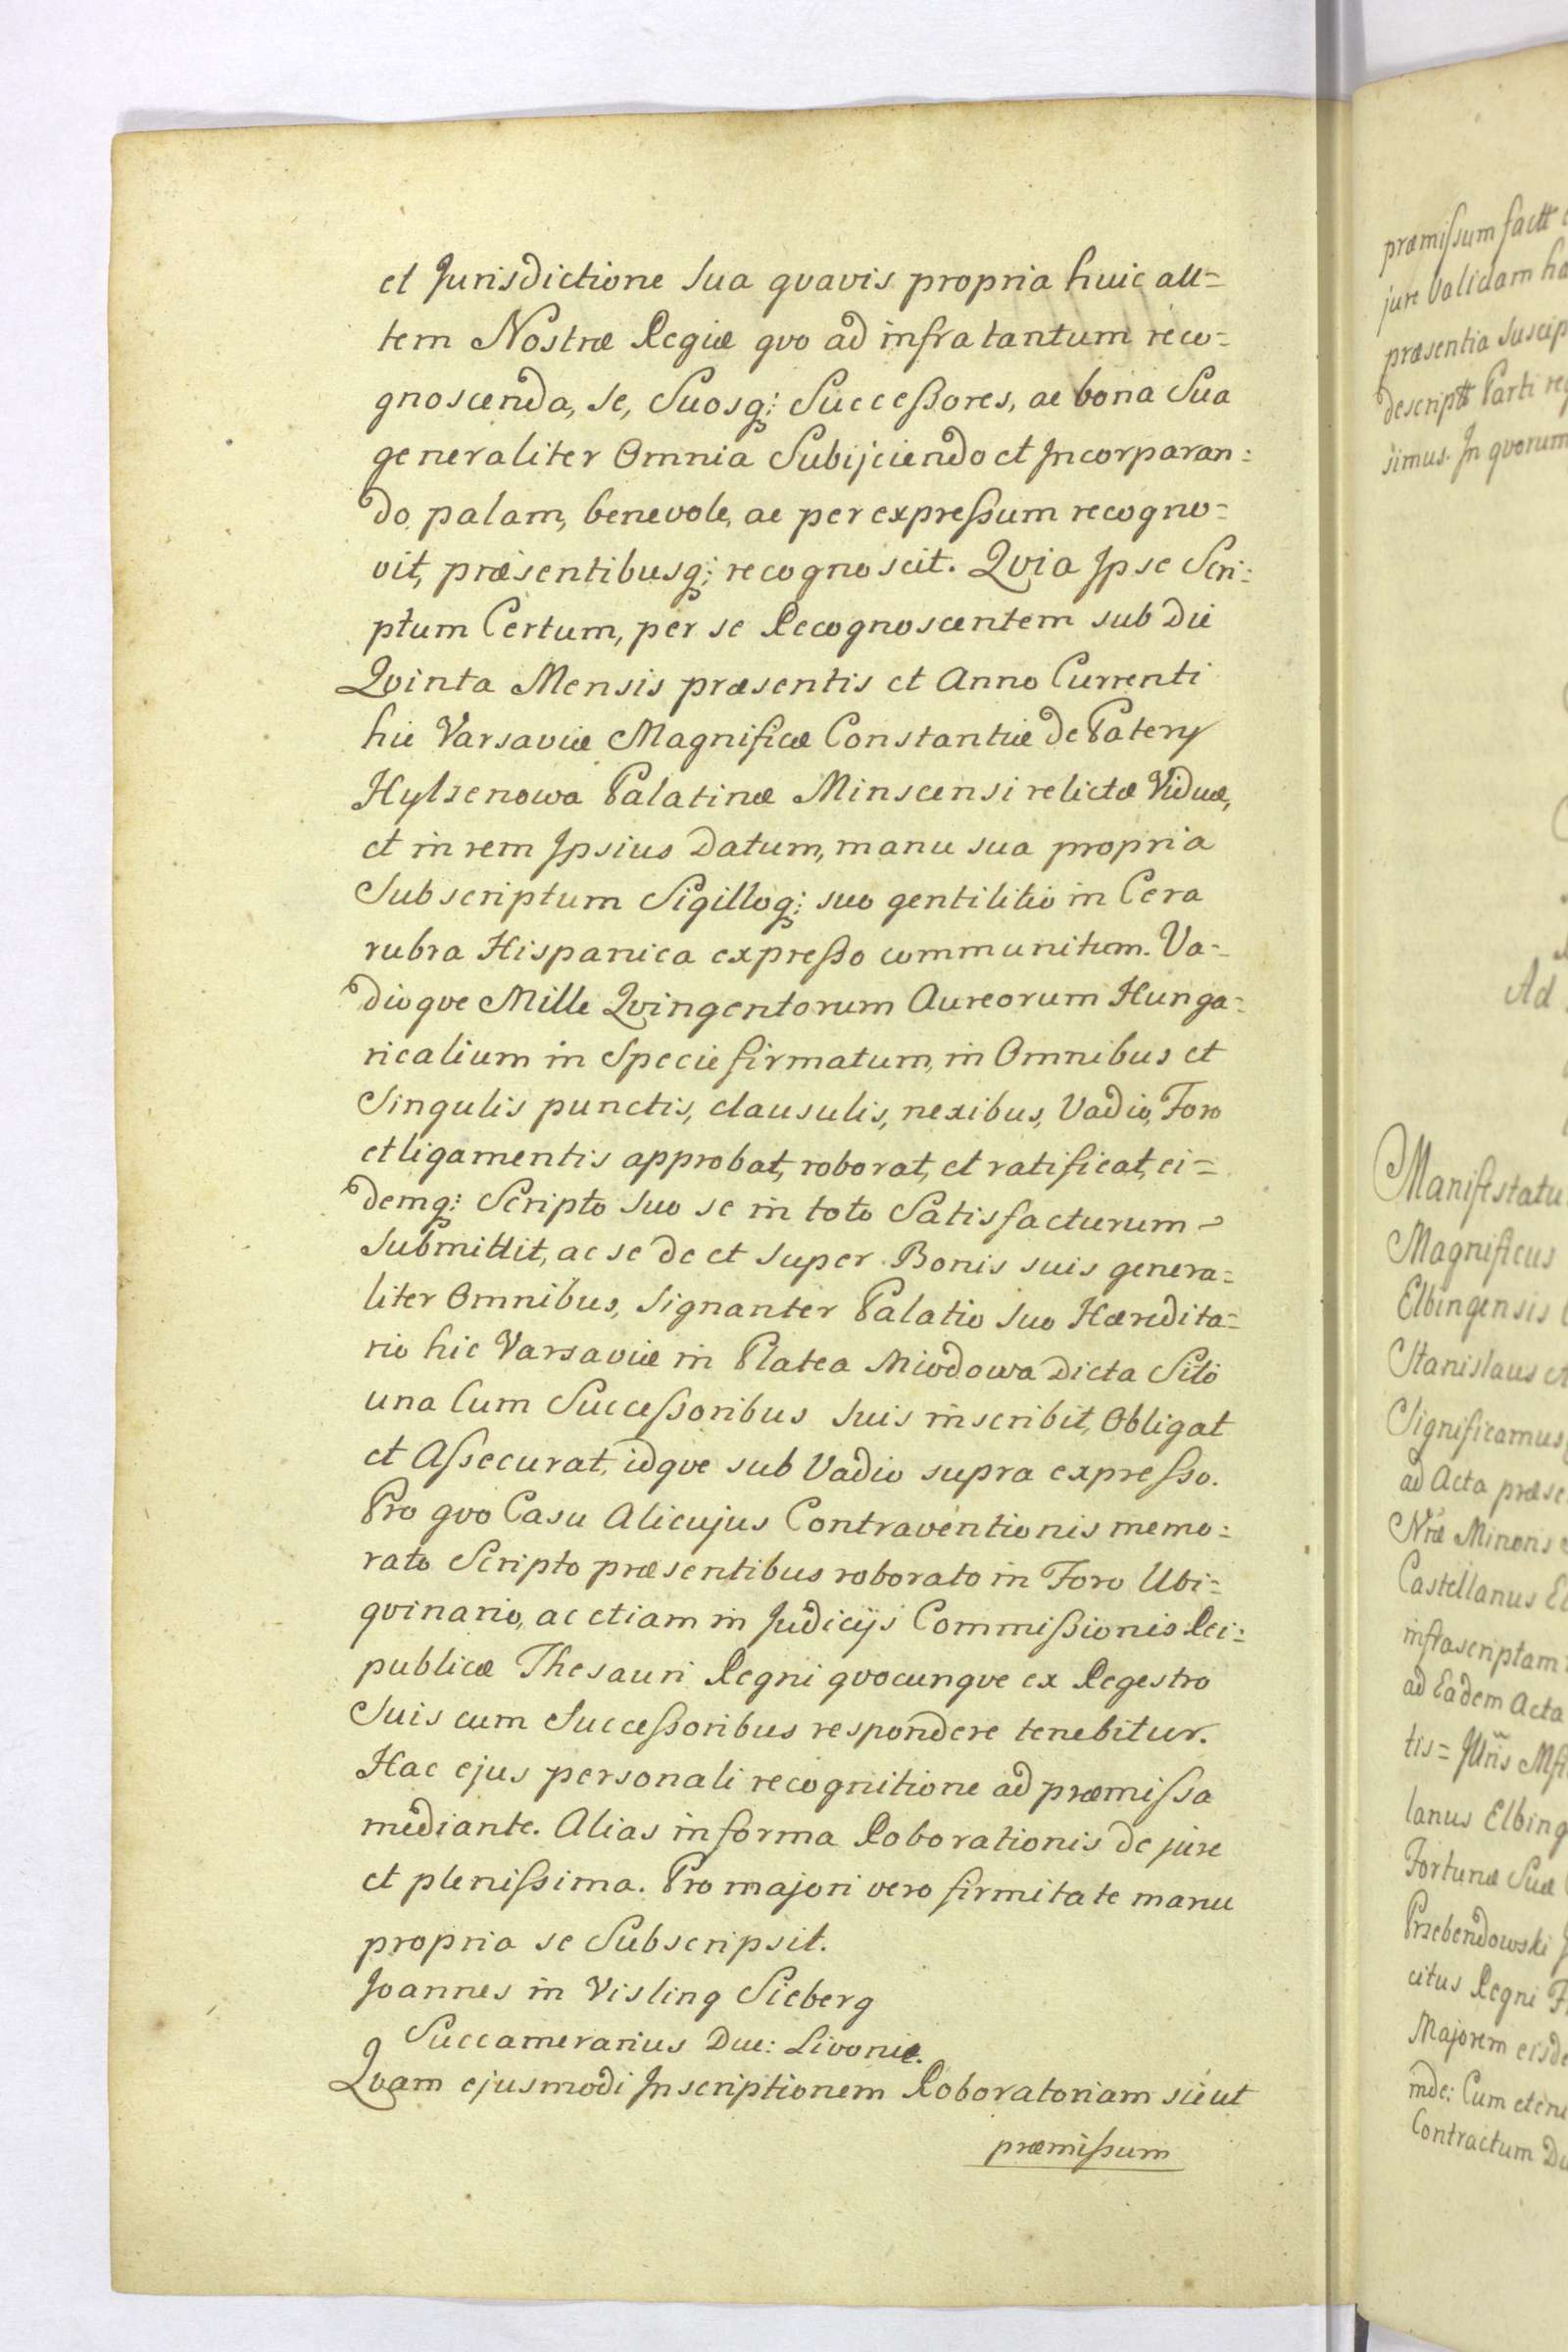 et Jurisdictione Sua qvavis propria huic au=
tem Nostræ Regiæ qvo ad infra tantum reco=
gnoscenda, se, Suosq; Successores, ac bona Sua
generaliter Omnia Subijciendo et Incorporan=
do palam, benevole, ac per expressum recogno=
vit, præsentibusq; recognoscit. Qvia Ipse Scri=
ptum Certum, per se Recognoscentem sub Die
Qvinta Mensis præsentis et Anno Currenti
hic Varsaviæ Magnificæ Constantiæ de Platery
Hylzenowa Palatinæ Minscensi relictæ Viduæ,
et in rem Ipsius Datum, manu sua propria
Subscriptum Sigilloq; suo gentilitio in Cera
rubra Hispanica expresso communitum. Va=
dioqve Mille Qvingentorum Aureorum Hunga=
ricalium in Specie firmatum, in Omnibus et
Singulis punctis, clausulis, nexibus, Vadio, Foro
et ligamentis approbat, roborat, et ratificat, ei=
demq; Scripto Suo se in toto Satisfacturum
Submittit, ac se de et super Bonis suis genera=
liter Omnibus, Signanter Palatio Suo Hæredita=
rio hic Varsaviæ in Platea Miodowa Dicta Sito
una Cum Successoribus Suis inscribit, Obligat
et Assecurat, idqve sub Vadio supra expresso.
Pro qvo Casu Alicujus Contraventionis memo=
rato Scripto præsentibus roborato in Foro Ubi=
qvinario, ac etiam in Judicijs Commissionis Rei=
publicæ Thesauri Regni qvocunqve ex Regestro
Suis cum Successoribus respondere tenebitur.
Hac ejus personali recognitione ad præmissa
mediante. Alias in forma Roborationis de jure
et plenissima. Pro majori vero firmitate manu
propria se Subscripsit.
Joannes in Visling Sieberg
Succamerarius Duc: Livoniæ.
Qvam ejusmodi Inscriptionem Roboratoriam sicut
præmissum
præmissum factt
jure Validam
præsentia Suscip
descriptt Parti
simus. In qvorum
Ad
Manifestatu
Magnificus
Elbingensis
Stanislaus
Significamus
ad Acta præse
Nræ Minoris
Castellanus
infrascriptam
ad Eadem Acta
tis=
lanus Elbing
Fortunæ Suæ
Przebendowski
citus Regni
Majorem
inde: Cum
Contractum